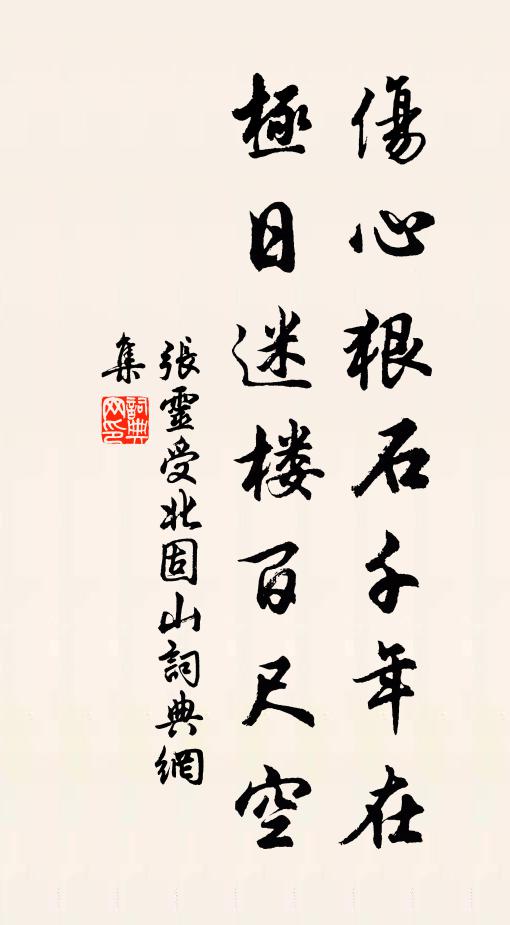 傷心狠石千年在
極日迷楼百尺空
張靈受北固山詞典網
集
詞典網印